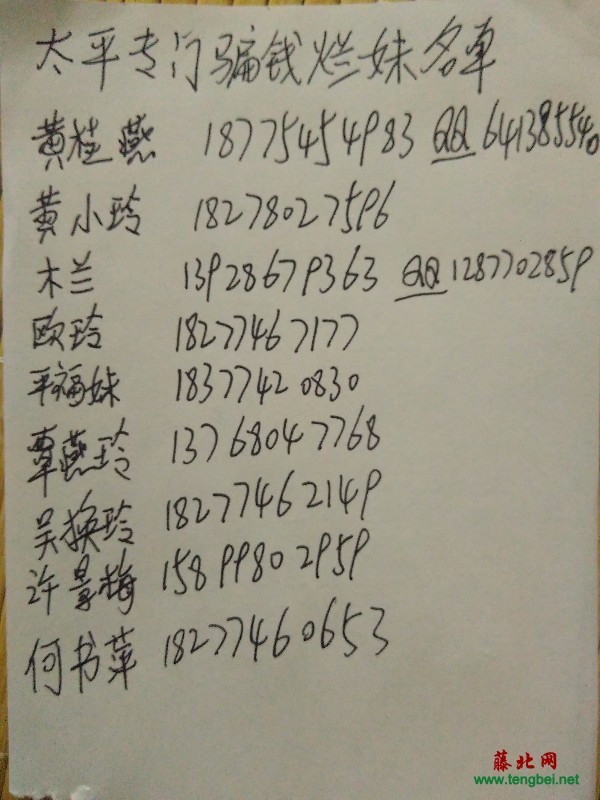 太平专门骗钱烂妹名单
黄桂燕 18775454983 QQ 641385540
黄小玲 18278027596
木兰 13928679363 QQ 1287702859
欧玲 18277467177
平福妹 18377420830
覃燕玲 13768047768
吴换玲 18277462149
许景梅 15899802959
何书萍 18277460653
藤北网
www.tengbei.net